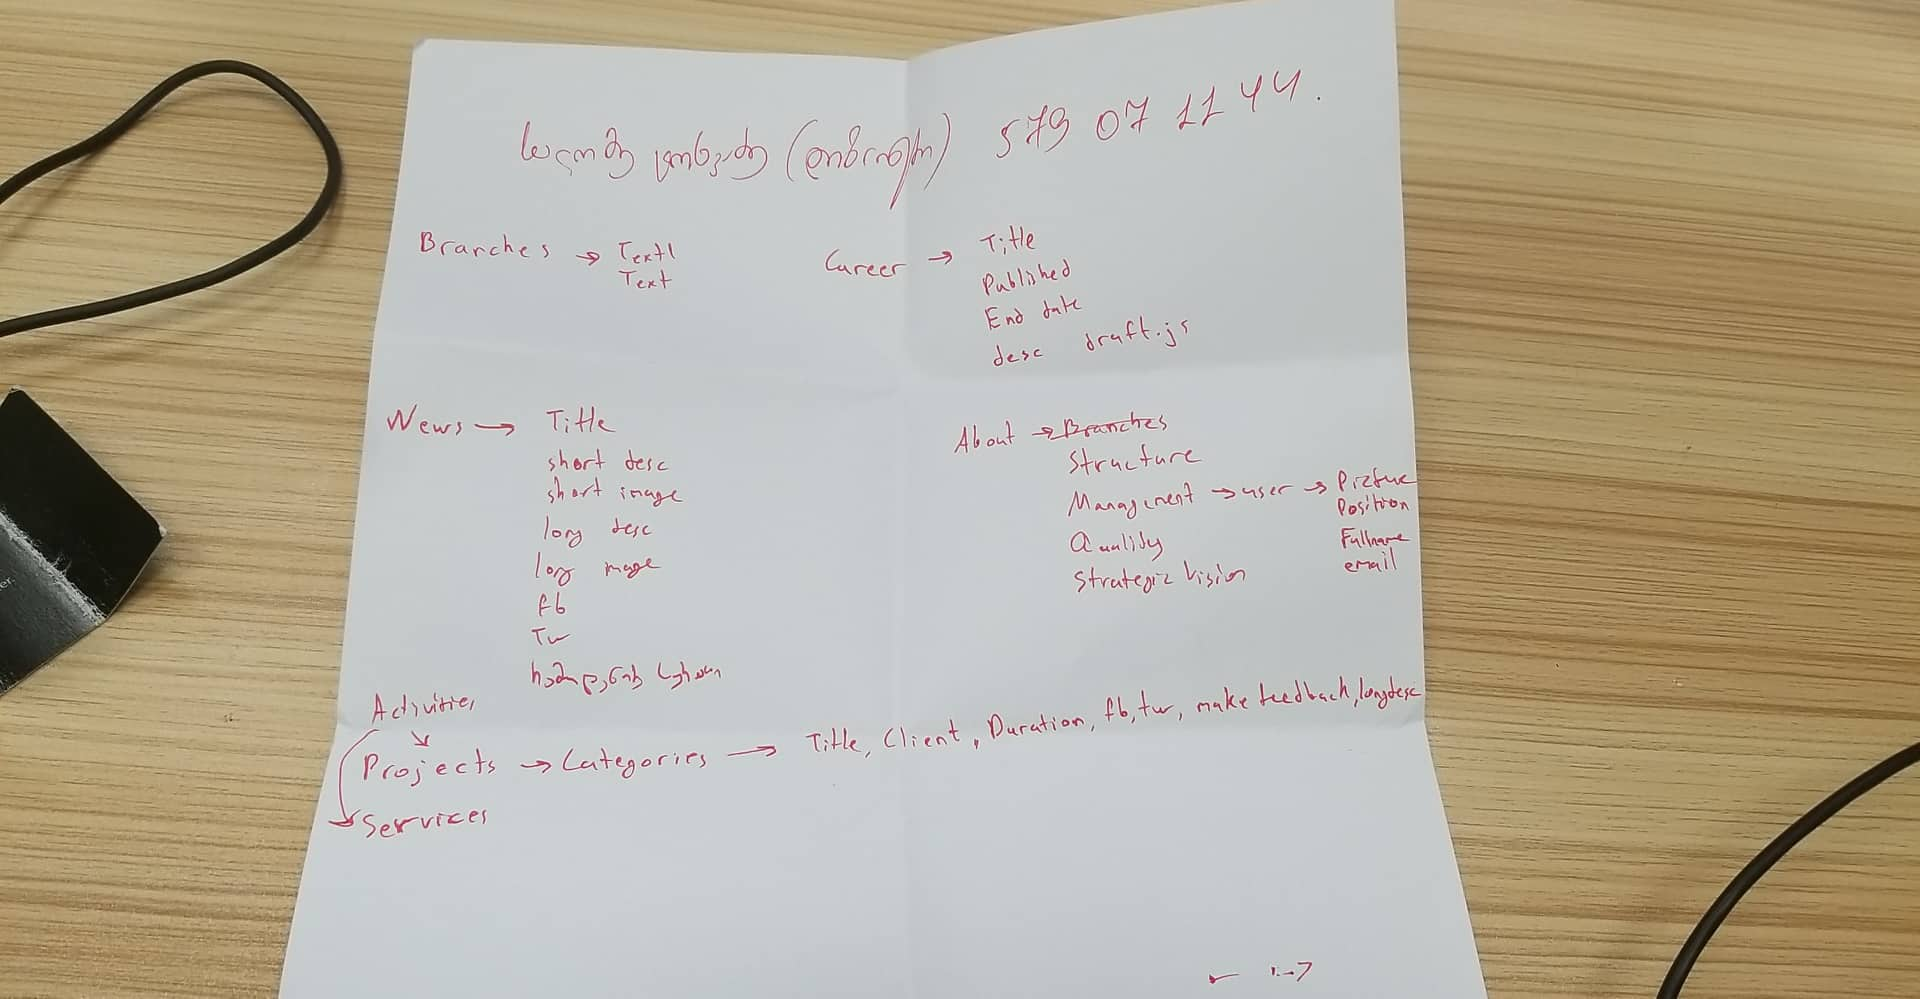 579 07 11 44.
Branches → Text1
Text
Career → Title
Published
End date
desc draft.js
News → Title
short desc
short image
long desc
long image
fb
Tw
About → Branches
Structure
Management → user → Picture
Position
Fullname
email
Quality
Strategic Vision
Activities
Projects → Categories → Title, Client, Duration, fb, tw, make feedback, longdesc
Services